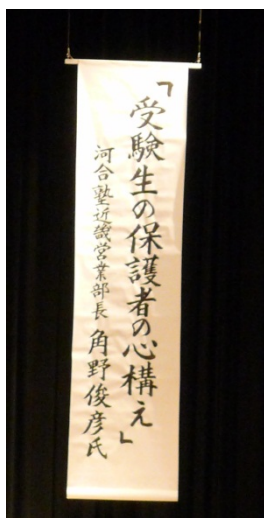 「受験生の保護者の心構え」
河合塾近畿営業部長 角野俊彦氏